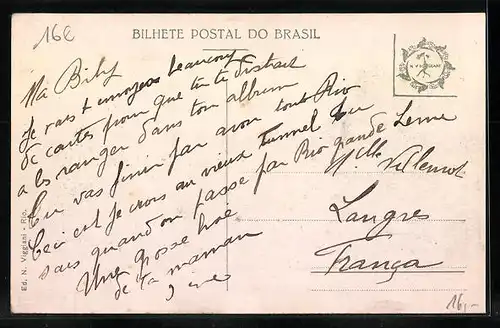 16E
BILHETE POSTAL DO BRASIL
Ma Biby
Je vais t'envoyer beaucoup
de cartes pour que tu te distrais
a les ranger dans ton album
Tu vas finir par avoir tout Rio
Ceci est je crois au vieux Tunnel tu
sais quand on passe par Rio grande Leme
Une grosse
de ta maman
Mlle Villemot
Langres
França
Ed. N. Viggiani - Rio.
16,-